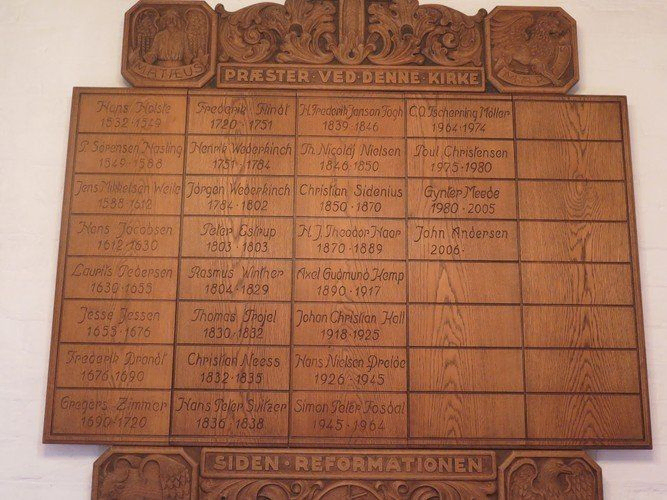 MATÆUS
PRÆSTER · VED · DENNE · KIRKE
Hans Holste
1532 · 1549
P. Sørensen Nasling
1549 · 1588
Jens Mikkelsen Weile
1588 · 1612
Hans Jacobsen
1612 · 1630
Laurits Pedersen
1630 · 1655
Jesse Jessen
1655 · 1676
Frederik Brandt
1676 · 1690
Gregers Zimmer
1690 · 1720
Frederik Flindt
1720 · 1751
Henrik Wederkinch
1751 · 1784
Jörgen Wederkinch
1784 · 1802
Peter Estrup
1803 · 1803
Rasmus Winther
1804 · 1829
Thomas Trojel
1830 · 1832
Christian Neess
1832 · 1835
Hans Peter Svitzer
1836 · 1838
H. Frederik Janson Fogh
1839 · 1846
Th. Nicolaj Nielsen
1846 · 1850
Christian Sidenius
1850 · 1870
H. J. Theodor Haar
1870 · 1889
Axel Gudmund Kemp
1890 · 1917
Johan Christian Holl
1918 · 1925
Hans Nielsen
1926 · 1945
Simon Peter Fosdal
1945 · 1964
C.O. Tscherning Møller
1964 · 1974
Poul Christensen
1975 · 1980
Gynter Meede
1980 · 2005
John Andersen
2006 ·
SIDEN · REFORMATIONEN